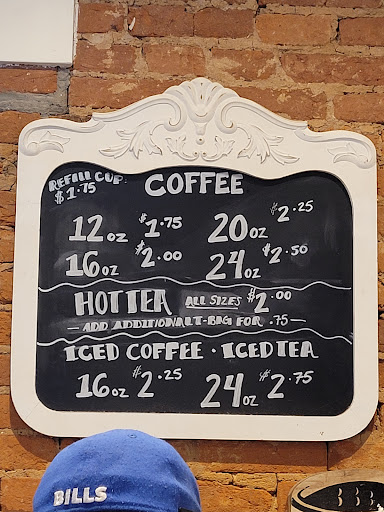 REFILL CUP:
$1.75
COFFEE
12oz $1.75 20oz $2.25
16oz $2.00 24oz $2.50
HOT TEA ALL SIZES $2.00
— ADD ADDITIONAL T-BAG FOR .75 —
ICED COFFEE · ICED TEA
16oz $2.25 24oz $2.75
BILLS